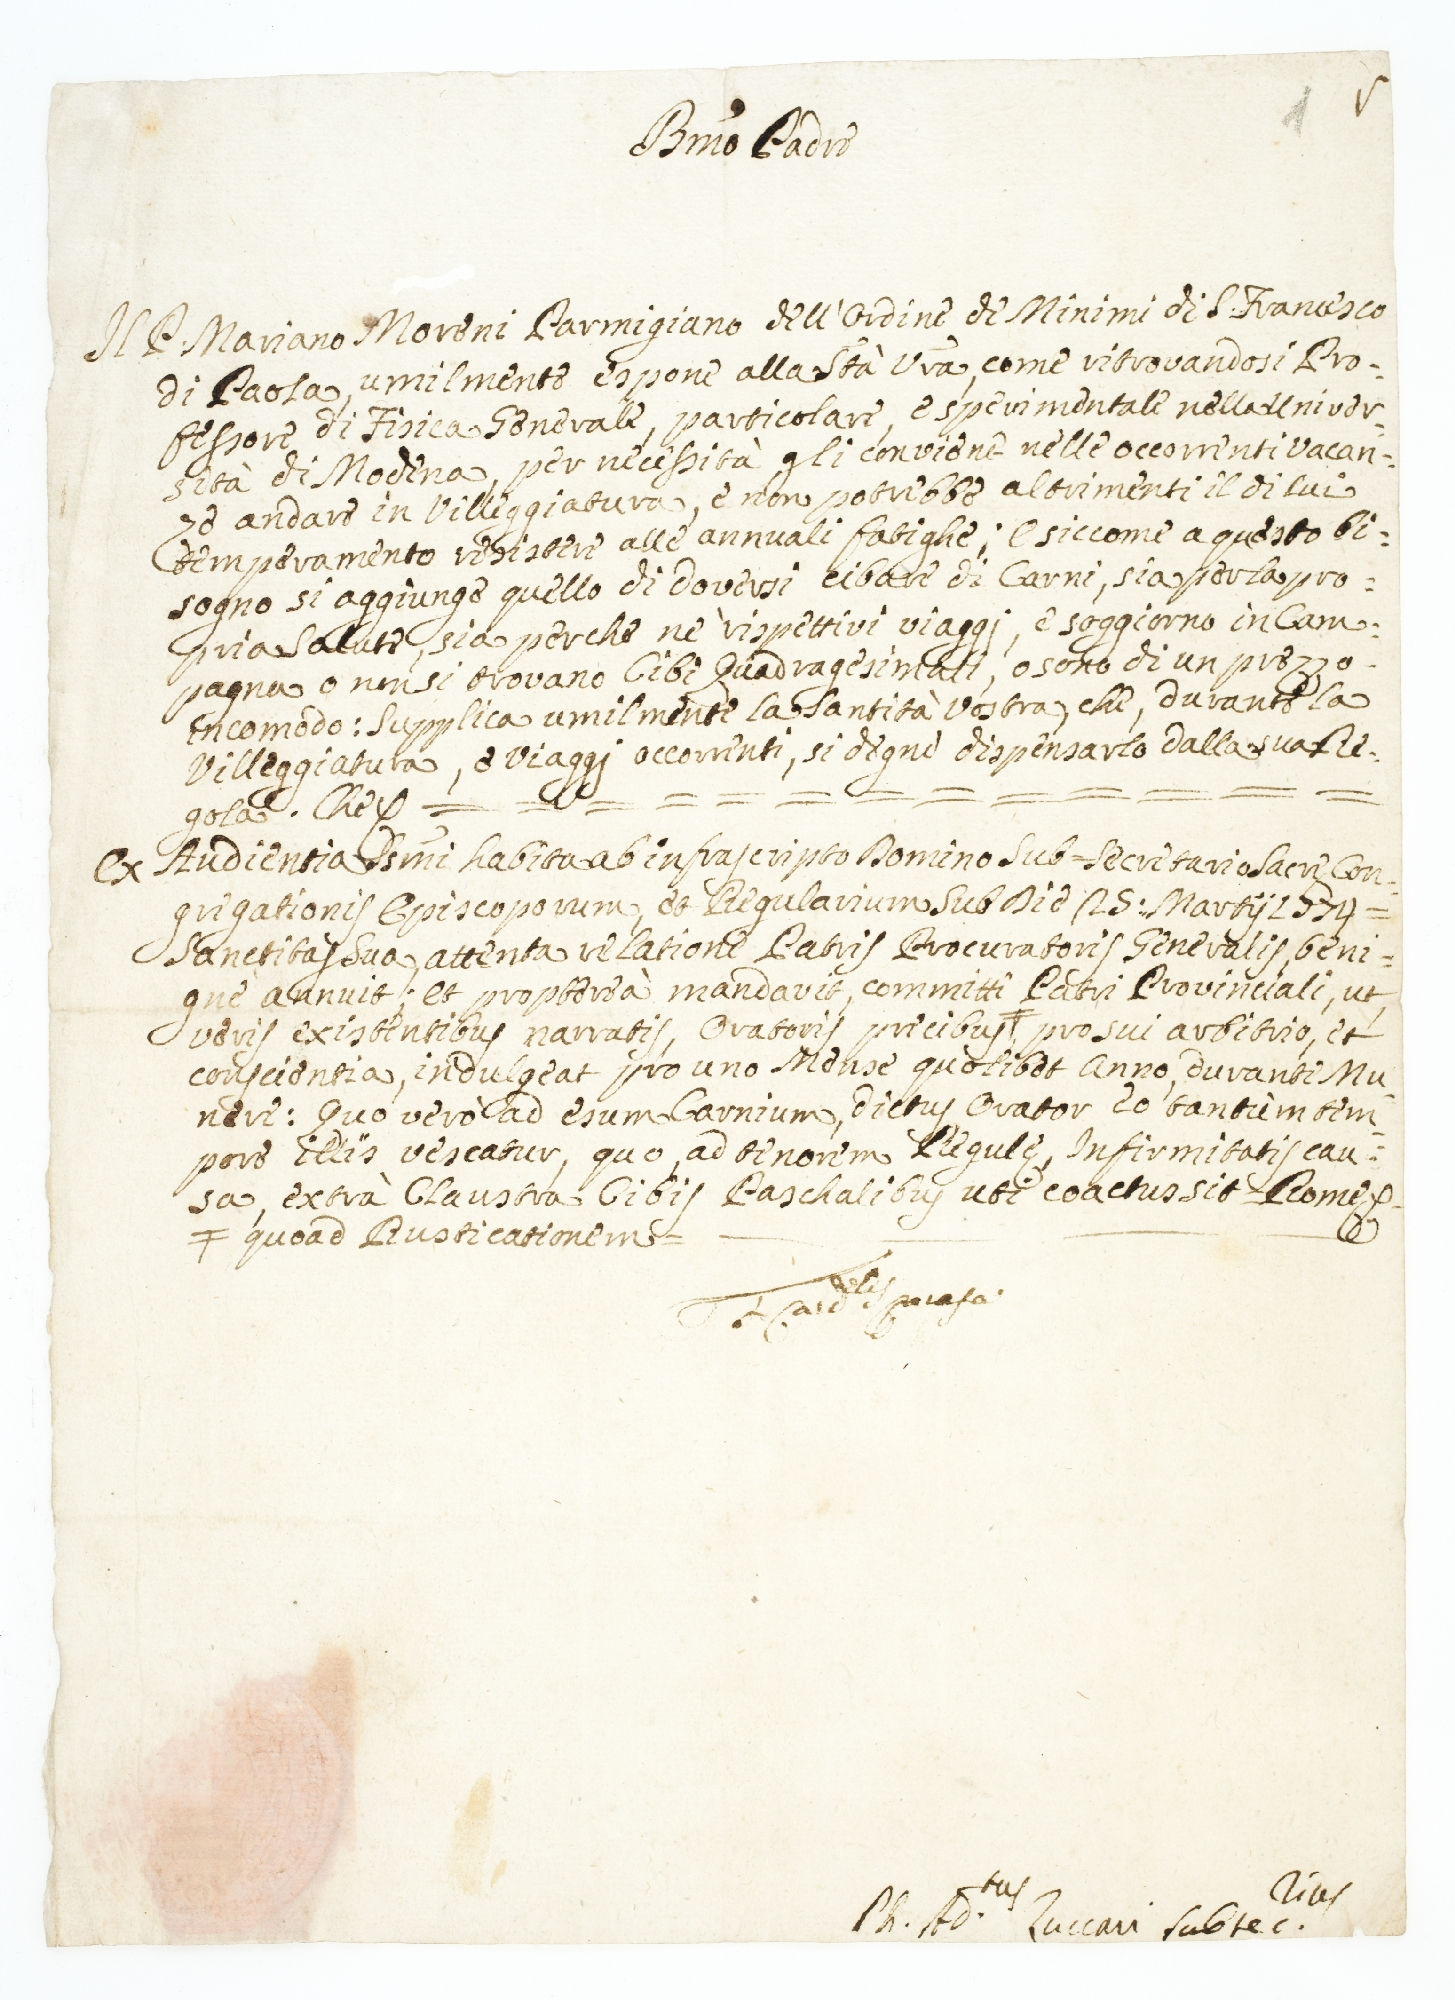 1 V
Bmo Padre
Il P. Mariano Moreni Parmigiano dell'Ordine de Minimi di S. Francesco
di Paola, umilmente espone alla Stà Vra, come ritrovandosi Pro-
fessore di Fisica Generale, particolare, e sperimentale nella Univer-
sità di Modena, per necessità gli conviene nelle occorrenti Vacan-
ze andare in Villeggiatura, e non potrebbe altrimenti il di lui
temperamento resistere alle annuali fatighe; E siccome a questo bi=
sogno si aggiunge quello di doversi cibare di Carni, sia per la pro=
pria Salute, sia perche ne' rispettivi viaggj, e soggiorno in Cam=
pagna o non si trovano Cibi Quadragesimali, o sono di un prezzo
incomodo: Supplica umilmente la Santità Vostra, che, durante la
Villeggiatura, e viaggj occorrenti, si degni dispensarlo dalla sua Re-
gola. Che &
Ex Audientia Ssmi habita ab infrascripto Domino Sub=Secretario Sacre Con-
gregationis Episcoporum, et Regularium Sub Die 25: Martij 1774=
Sanctitas Sua, attenta relatione Patris Procuratoris Generalis, beni=
gne annuit; et proptereà mandavit, committi Patri Provinciali, ut
veris existentibus narratis, Oratoris precibus ∓, pro sui arbitrio, et
conscientia, indulgeat pro uno Mense quolibet Anno, durante Mu
nere: Quo verò ad esum Carnium, dictus Orator eo tantùm tem=
pore illis vescatur, quo, ad tenorem Regule, Infirmitatis cau=
sa, extrà Claustra Cibis Paschalibus uti coactus sit = Rome &
∓ quoad Rusticationem =
Card.lis Carafa
Ph. Ad.tus Zuccari Subsec.rius